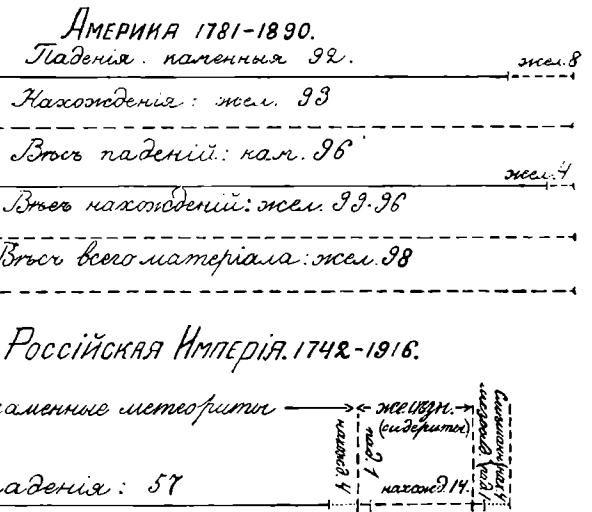 Америка 1781-1890.
Паденія. каменныя 92.
жел. 8
Нахожденія: жел. 93
Вѣсъ паденій: кам. 96
жел. 4
Вѣсъ нахожденій: жел. 99.96
Вѣсъ всего матеріала: жел. 98
Россійская Имперія. 1742-1916.
аменные метеориты
желѣзн.
(сидериты)
нахожд. 4
пад. 1
нахожд. 14.
пад. 1
аденія: 57